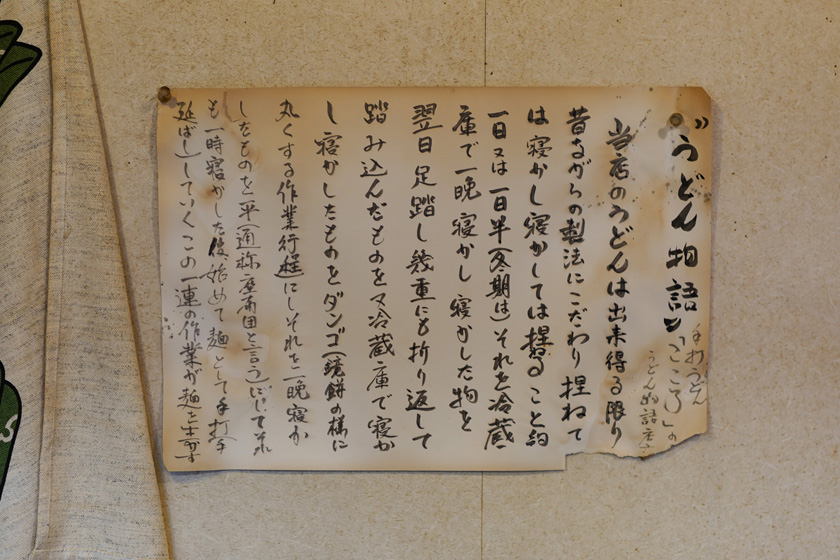 〝うどん物語〟
手打うどん
「こころ」の
うどん物語
当店のうどんは出来得る限り
昔ながらの製法にこだわり捏ねて
は寝かし寝かしては捏ねること約
一日又は一日半(冬期は)それを冷蔵
庫で一晩寝かし寝かした物を
翌日足踏し幾重にも折り返して
踏み込んだものを又冷蔵庫で寝か
し寝かしたものをダンゴ(鏡餅の様に
丸くする作業行程)にしそれを一晩寝か
したものを平(通称座布団と言う)にしてそれ
も一時寝かした後始めて麺として手打(手
延ばし)していくこの一連の作業が麺を